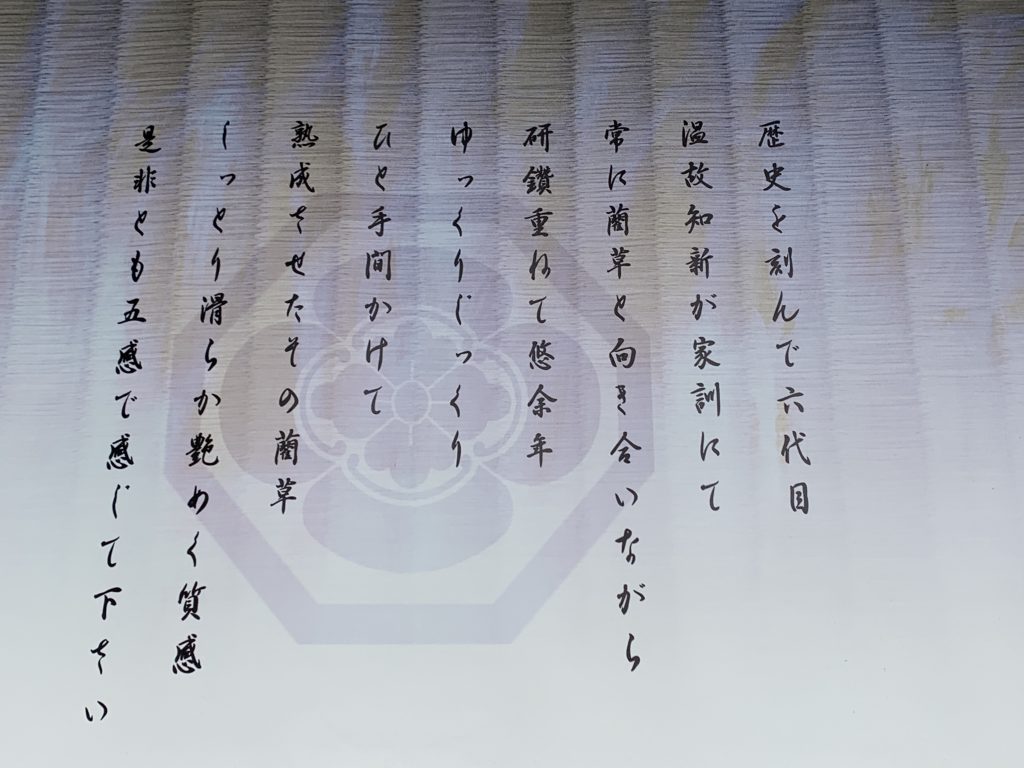 歴史を刻んで六代目
温故知新が家訓にて
常に藺草と向き合いながら
研鑽重ねて悠余年
ゆっくりじっくり
ひと手間かけて
熟成させたその藺草
しっとり滑らか艶めく質感
是非とも五感で感じて下さい